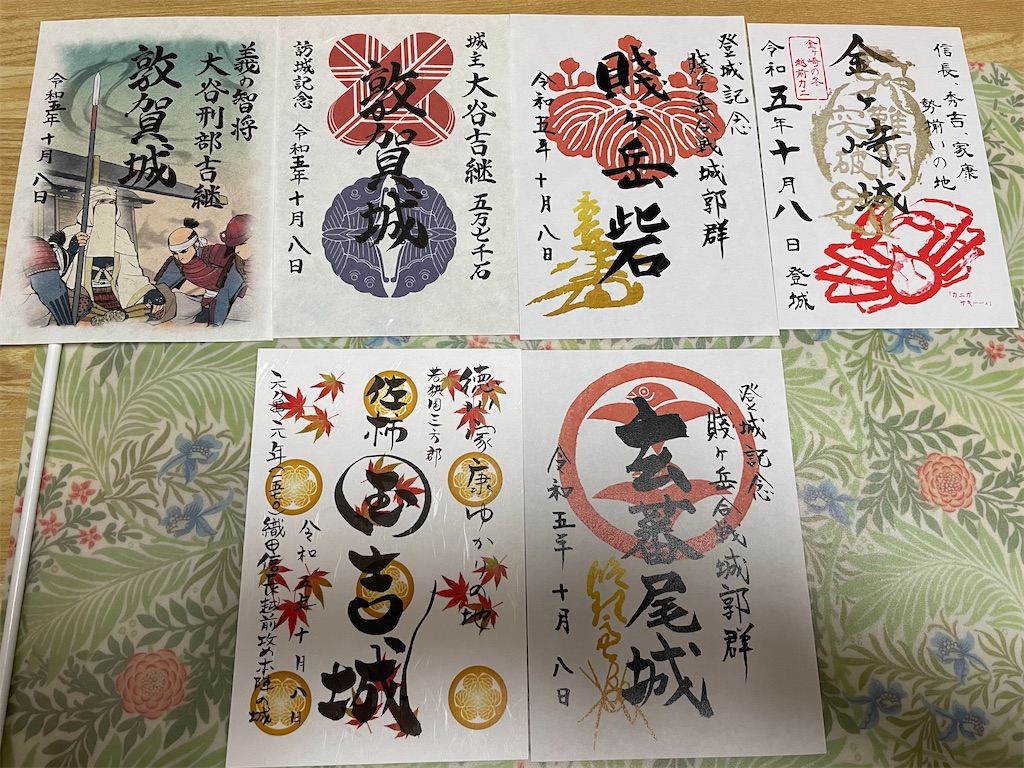 義の智将
大谷刑部吉継
敦賀城
令和五年十月八日
城主 大谷吉継 五万七千石
敦賀城
訪城記念 令和五年十月八日
登城記念
賤ヶ岳合戦城郭群
賤ヶ岳砦
令和五年十月八日
信長、秀吉、家康
勢揃いの地
金ヶ崎城
難関
突破
金ヶ崎の冬
越前カニ
令和五年十月八日登城
徳川家康ゆかりの地
若狭国三方郡
佐柿
国吉城
令和五年十月八日
元亀元年(一五七〇)織田信長越前攻め本陣の城
登城記念
賤ヶ岳合戦城郭群
玄蕃尾城
令和五年十月八日